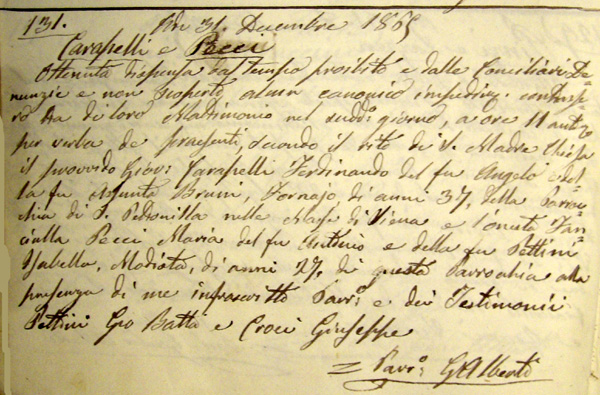 131. Adi 31. Decembre 1865
Carapelli e Pecci
Ottenuta dispensa dal tempo proibito e dalle Conciliari De=
nunzie e non scoperto alcun canonico impedim. contrass
ero tra di loro Matrimonio nel sudd.o giorno, a ore 11 antim
per verba de praesenti, secondo il rito di S. Madre Chiesa
il provvido Giov: Carapelli Ferdinando del fu Angelo e del=
la fu Assunta Bruni, Fornajo, di anni 37, della Parroc=
chia di S. Petronilla nelle Masse di Siena e l'onesta Fan=
ciulla Pecci Maria del fu Antonio e della fu Pettini
Isabella, Modista, di anni 27, di questa Parrochia alla
presenza di me infrascritto Parr.o e dei Testimonii
Pettini Gio Batta e Croci Giuseppe
= Parr.o: G. Alberti